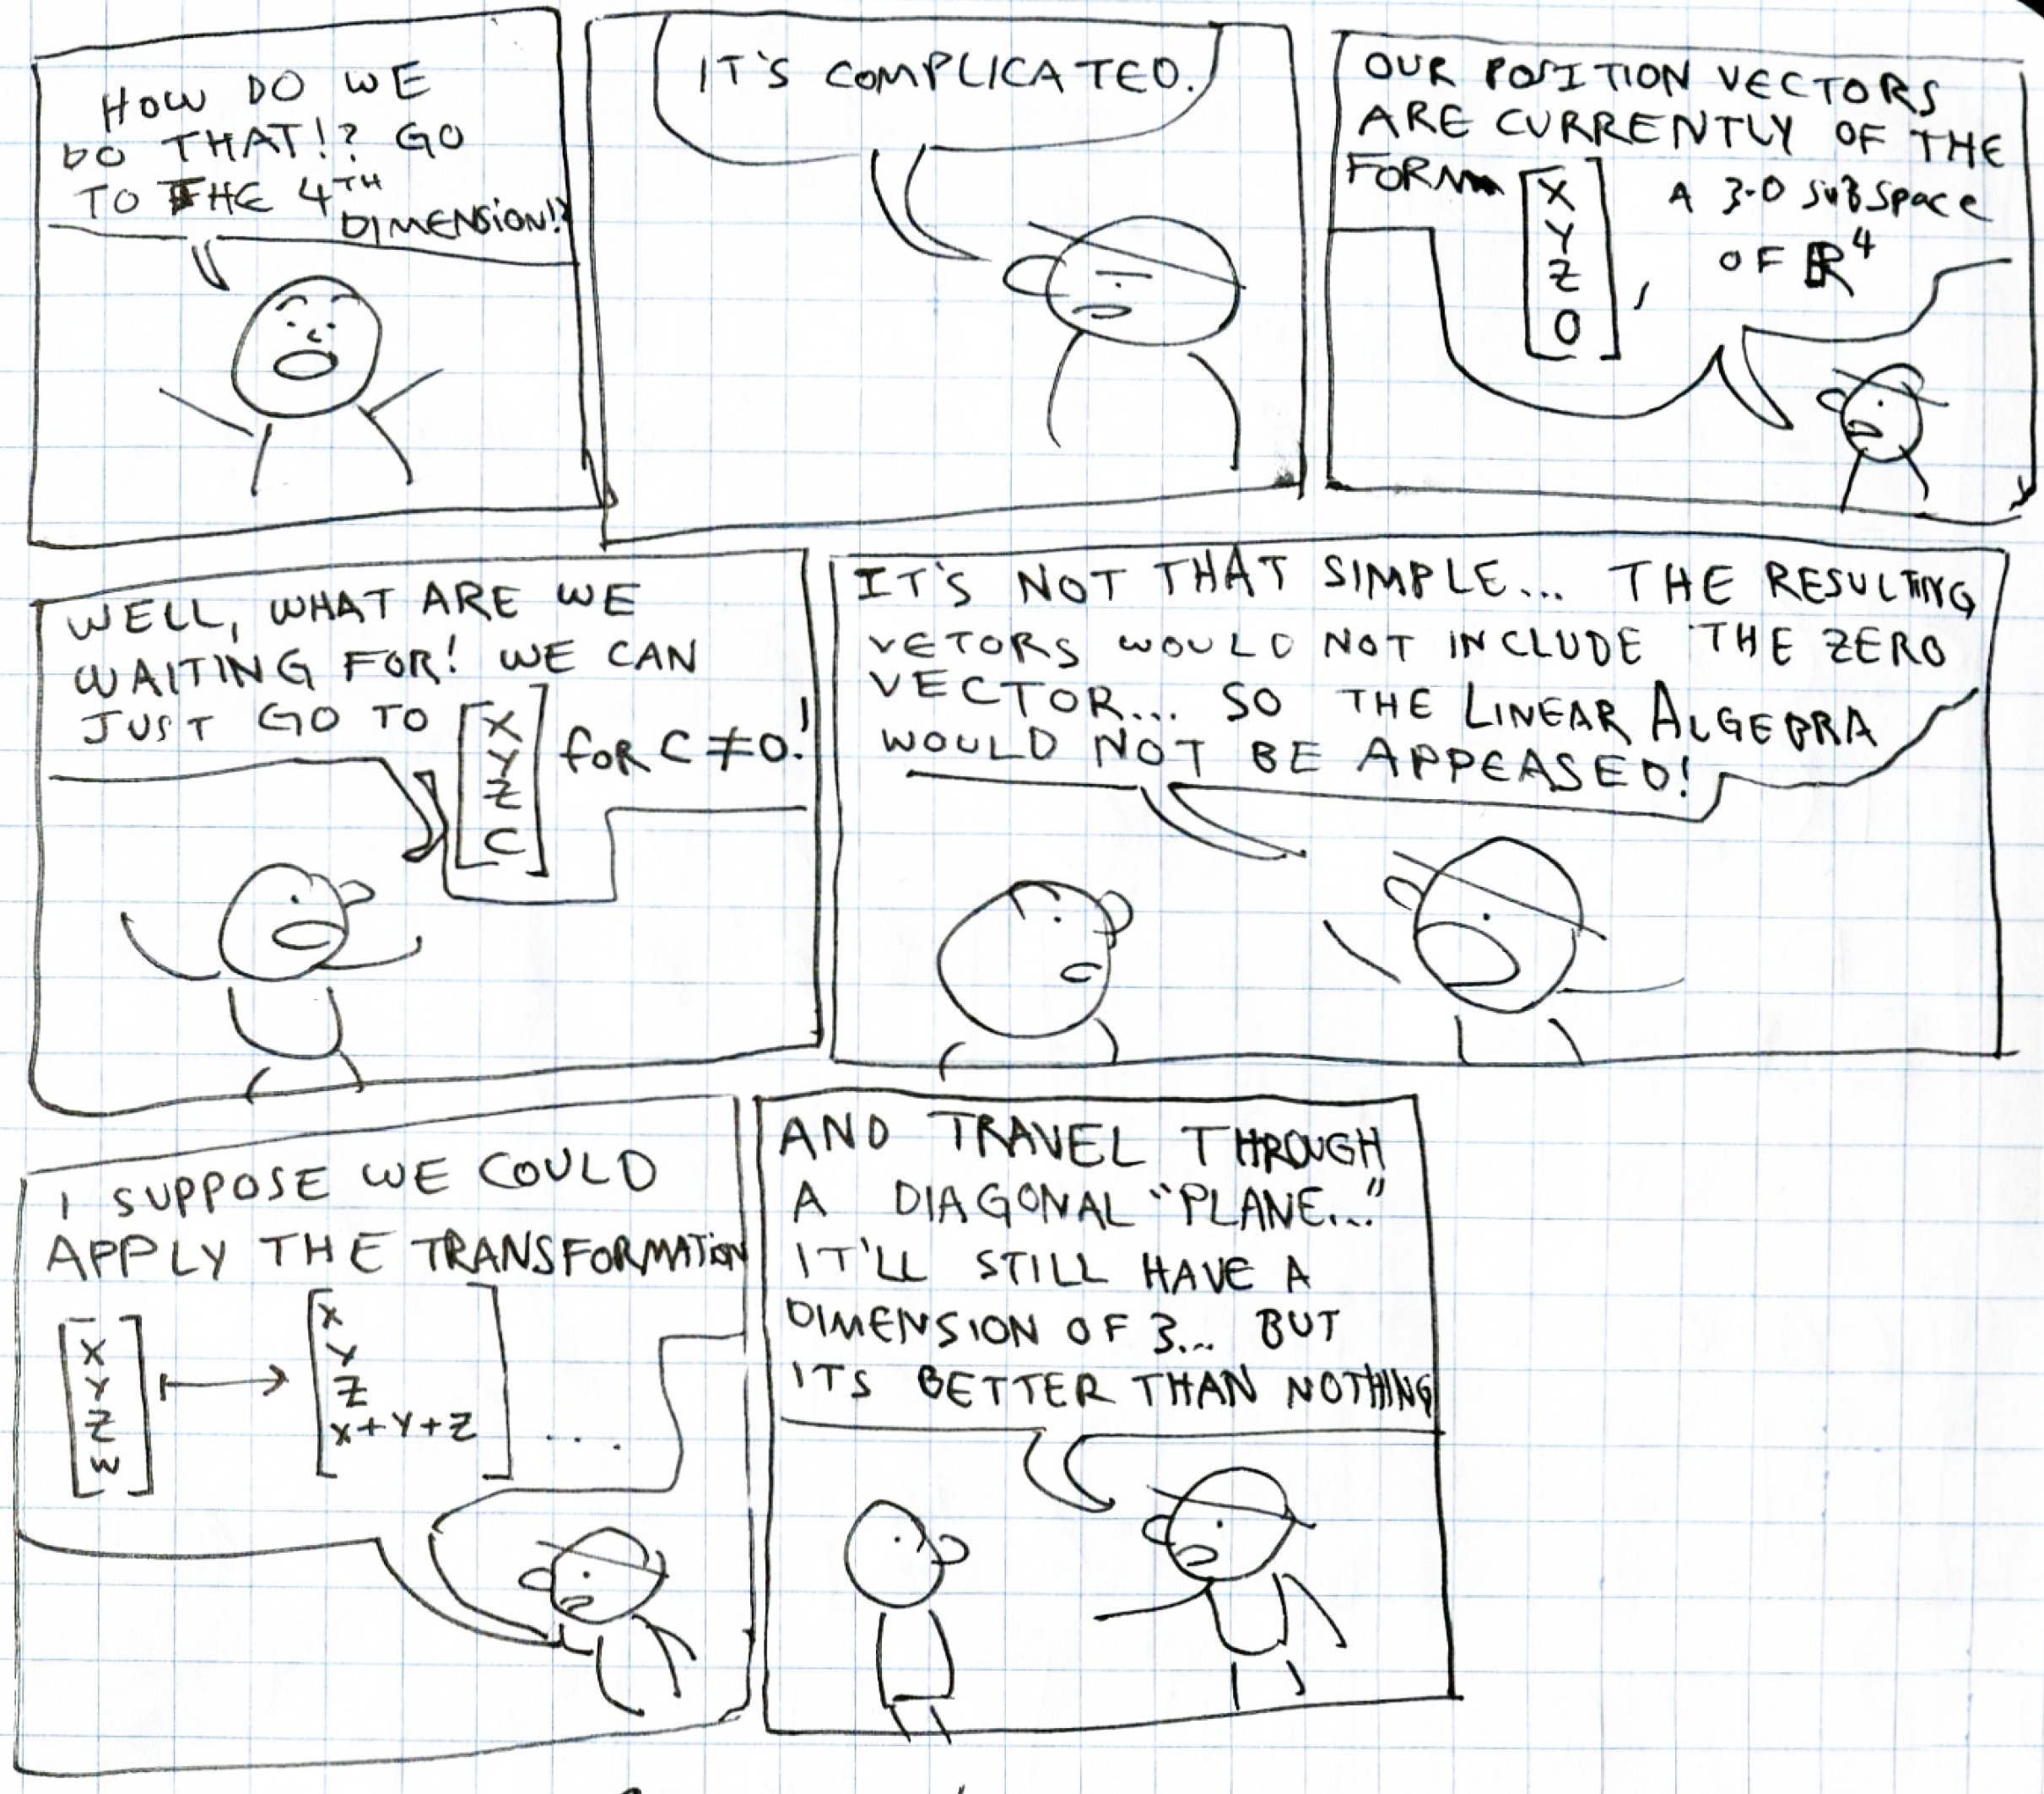 HOW DO WE
DO THAT!? GO
TO THE 4TH
DIMENSION!?
IT'S COMPLICATED.
OUR POSITION VECTORS
ARE CURRENTLY OF THE
FORM [X Y Z 0], A 3-D SUBSPACE
OF R4
WELL, WHAT ARE WE
WAITING FOR! WE CAN
JUST GO TO [X Y Z C] FOR C≠0!
IT'S NOT THAT SIMPLE... THE RESULTING
VETORS WOULD NOT INCLUDE THE ZERO
VECTOR... SO THE LINEAR ALGEBRA
WOULD NOT BE APPEASED!
I SUPPOSE WE COULD
APPLY THE TRANSFORMATION
[X Y Z W] ↦ [X Y Z X+Y+Z] ...
AND TRAVEL THROUGH
A DIAGONAL "PLANE..."
IT'LL STILL HAVE A
DIMENSION OF 3... BUT
ITS BETTER THAN NOTHING